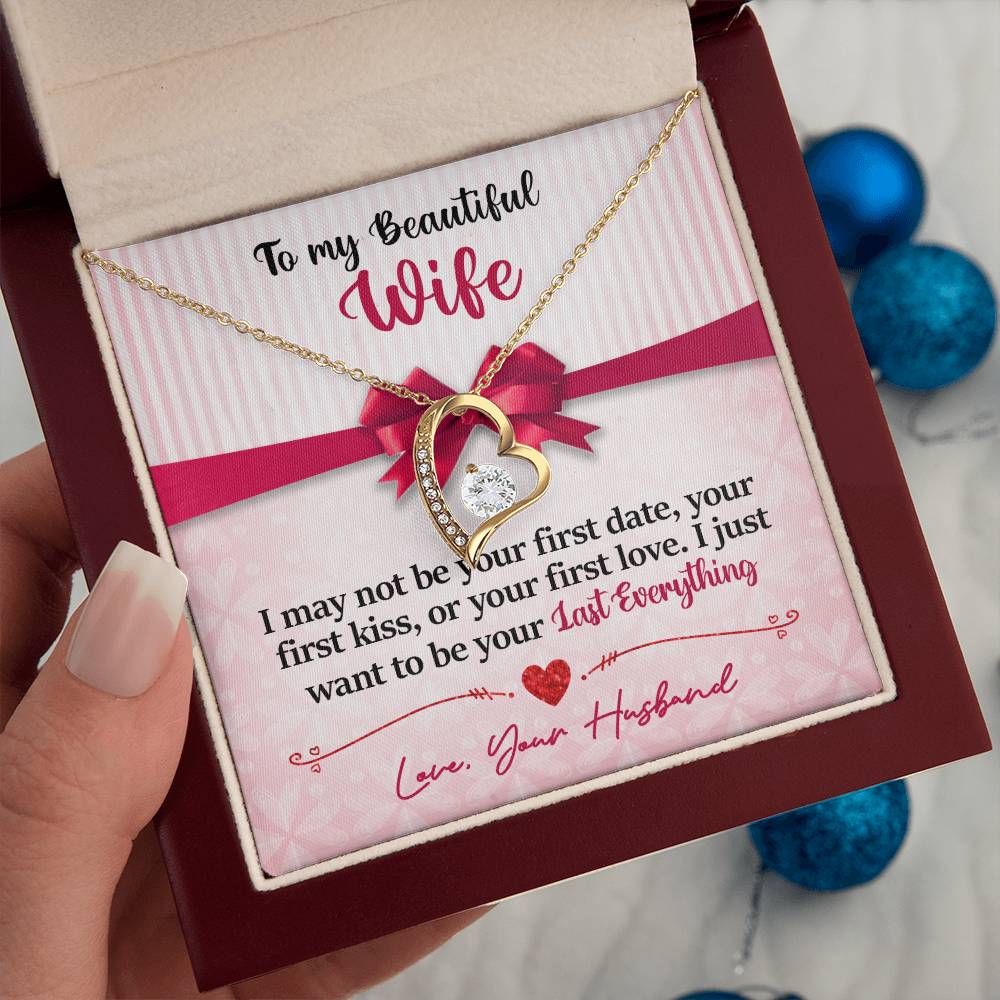 To my Beautiful
Wife
I may not be your first date, your
first kiss, or your first love. I just
want to be your Last Everything
Love, Your Husband